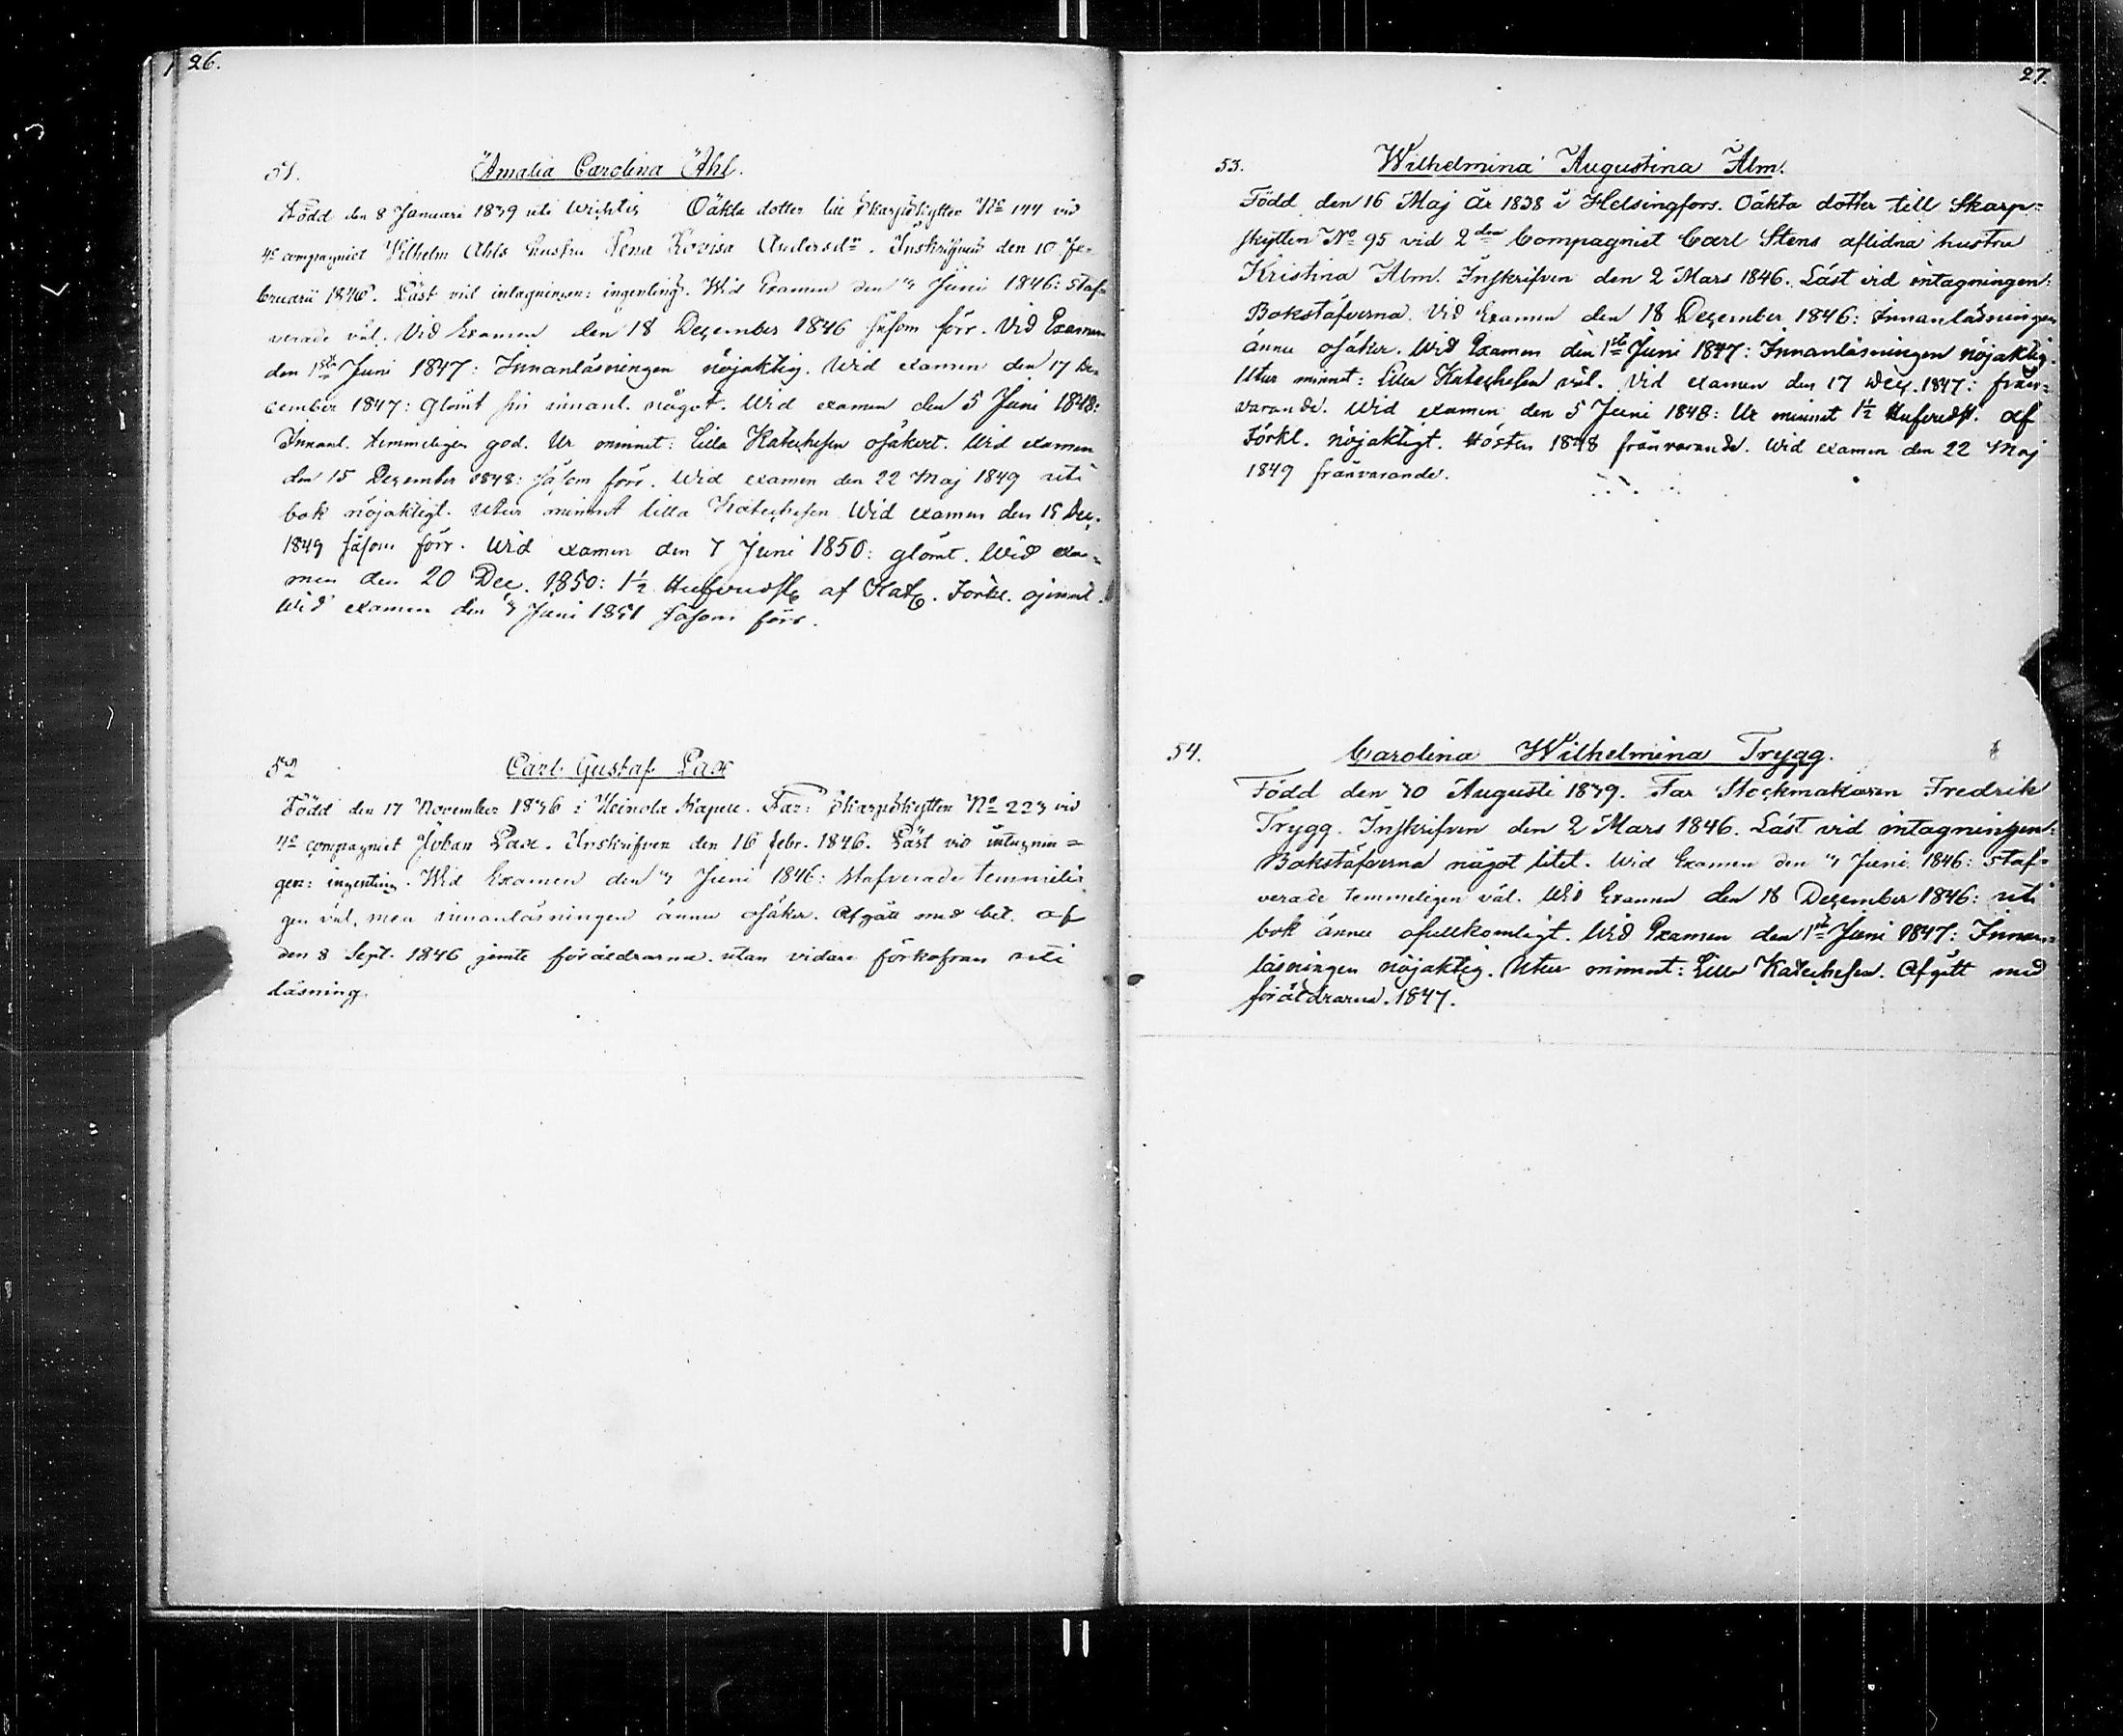 26.
51. Amalia Carolina Åhl.
Född den 8 Januari 1839 uti Wichtis Oäkta dotter till Skarpskytten No 144 vid
4e compagniet Vilhelm Åhls hustru Lena Lovisa Andersdr. Inskrifven den 10 Fe-
bruarii 1846. Läst vid intagningen: ingenting. Wid Examen den 4 Juni 1846: staf-
verade väl. Vid Examen den 18 December 1846 såsom förr. Vid Examen
den 1sta Juni 1847: Innanläsningen nöjaktig. Wid examen den 17 De-
cember 1847: Glömt sin innanl. något. Wid examen den 5 Juni 1848:
Innanl. temmeligen god. Ur minnet: Lilla Katechesen osäkert. Wid examen
den 15 December 1848: såsom förr. Wid examen den 22 Maj 1849 uti
bok nöjaktigt. Utur minnet lilla Katechesen Wid examen den 15 Dec.
1849 såsom förr. Wid examen den 7 Juni 1850: glömt. Wid exa-
men den 20 Dec. 1850: 1½ Hufvudst. af Kat. Förkl. ojemnt.
Wid examen den 4 Juni 1851 såsom förr.
52 Carl Gustaf Lax
Född den 17 November 1836 i Heinola Kapell. Far: Skarpskytten No 223 vid
4e compagniet Johan Lax. Inskrifven den 16 febr. 1846. Läst vid intagnin-
gen: ingenting. Wid Examen den 4 Juni 1846: stafverade temmeli-
gen väl, men innanläsningen ännu osäker. Afgått med bet. af
den 8 Sept. 1846 jemte föräldrarna utan vidare förkofran uti
läsning.
27.
53. Wilhelmina Augustina Alm.
Född den 16 Maj År 1838 i Helsingfors. Oäkta dotter till Skarp-
skytten No 95 vid 2dra Compagniet Carl Stens aflidna hustru
Kristina Alm. Inskrifven den 2 Mars 1846. Läst vid intagningen:
Bokstäfverna. Vid Examen den 18 December 1846: Innanläsningen
ännu osäker. Wid Examen den 1sta Juni 1847: Innanläsningen nöjaktig.
Utur minnet: Lilla Katechesen väl. Vid examen den 17 Dec. 1847: från-
varande. Wid examen den 5 Juni 1848: Ur minnet 1½ Hufvudst. af
Förkl. nöjaktigt. Hösten 1848 frånvarande. Wid examen den 22 Maj
1849 frånvarande.
54. Carolina Wilhelmina Trygg.
Född den 30 Augusti 1839. Far Stockmakaren Fredrik
Trygg. Inskrifven den 2 Mars 1846. Läst vid intagningen:
Bokstäfverna något litet. Wid Examen den 4 Juni 1846: staf-
verade temmeligen väl. Wid Examen den 18 December 1846: uti
bok ännu ofullkomligt. Wid Examen den 1sta Juni 1847: Innan-
läsningen nöjaktig. Utur minnet: Lilla Katechesen. Afgått med
föräldrarna. 1847.